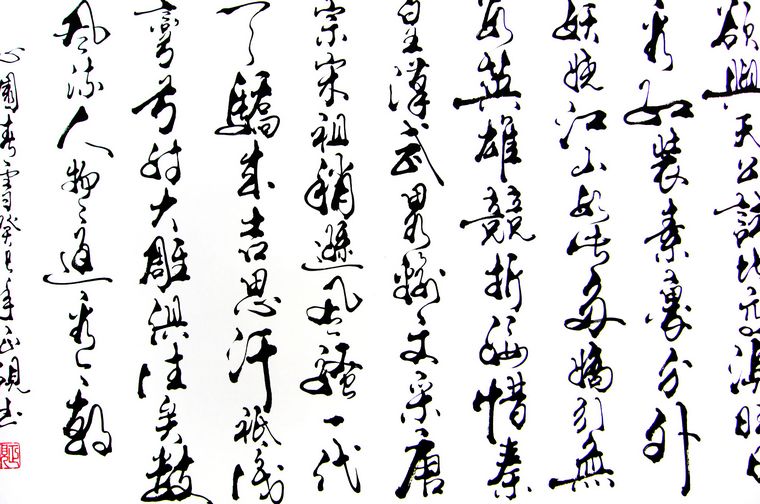 欲與天公試比高須晴日
看紅裝素裹分外
妖嬈江山如此多嬌引無
數英雄競折腰惜秦
皇漢武略輸文采唐
宗宋祖稍遜風騷一代
天驕成吉思汗祇識
彎弓射大雕俱往矣數
風流人物還看今朝
沁園春雪癸巳年正硯書